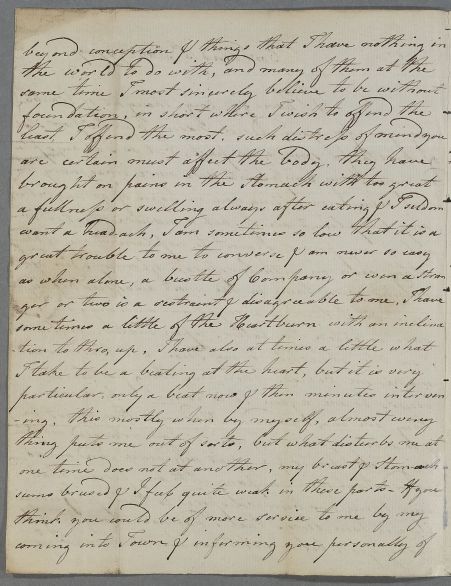 beyond conception & things that I have nothing in
the world to do with, and many of them at the
same time I most sincerely believe to be without
foundation, in short where I wish to offend the
least I offend the most, such distress of mind you
are certain must affect the body, they have
brought on pains in the Stomach with too great
a fullness or swelling always after eating & I seldom
want a headach, I am sometimes so low that it is a
great trouble to me to converse & am never so easy
as when alone, a bustle of Company or even a stran
ger or two is a restraint & disagreeable to me, I have
some times a little of the Heartburn with an inclina
tion to thro, up. I have also at times a little what
I take to be a beating at the heart, but it is very
particular, only a beat now & then minutes interven
-ing, this mostly when by myself, almost every
thing puts me out of sorts, but what disturbs me at
one time does not at another, my breast & Stomach
seems brused & I feel quite weak in these parts - If you
think you could be of more service to me by my
coming into Town & informing you personally of